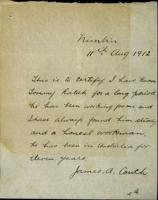 11th Aug 1912
This is to certify I have known
Tommy for a long period
He has been working for me and
I have always found him
and a honest workman.
He has been in Australia for
eleven years
James. A. Couch